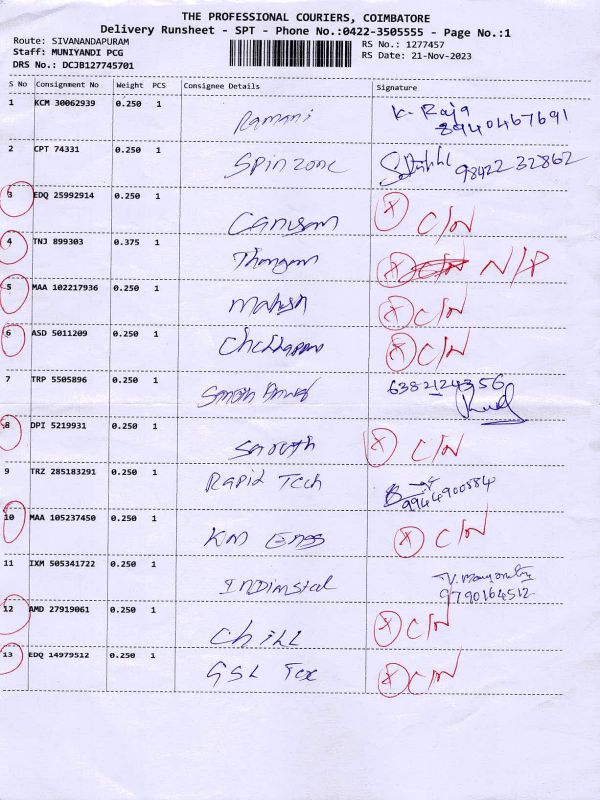 THE PROFESSIONAL COURIERS, COIMBATORE
Delivery Runsheet - SPT - Phone No.:0422-3505555 - Page No.:1
Route: SIVANANDAPURAM
Staff: MUNIYANDI PCG
DRS No.: DCJB127745701
RS No.: 1277457
RS Date: 21-Nov-2023
S No Consignment No Weight PCS Consignee Details Signature
1 KCM 30062939 0.250 1 Ramani K. Raja
8940467691
2 CPT 74331 0.250 1 Spinzone 98422 32862
3 EDQ 25992914 0.250 1 X C/N
4 TNJ 899303 0.375 1 Thangam X N/P
5 MAA 102217936 0.250 1 Mahesh X C/N
6 ASD 5011209 0.250 1 X C/N
7 TRP 5505896 0.250 1 6382124356
8 DPI 5219931 0.250 1 X C/N
9 TRZ 285183291 0.250 1 Rapid Tech 9944900584
10 MAA 105237450 0.250 1 KM Engg X C/N
11 IXM 505341722 0.250 1 9790164512
12 AMD 27919061 0.250 1 Chill X C/N
13 EDQ 14979512 0.250 1 GSL Tex X C/N